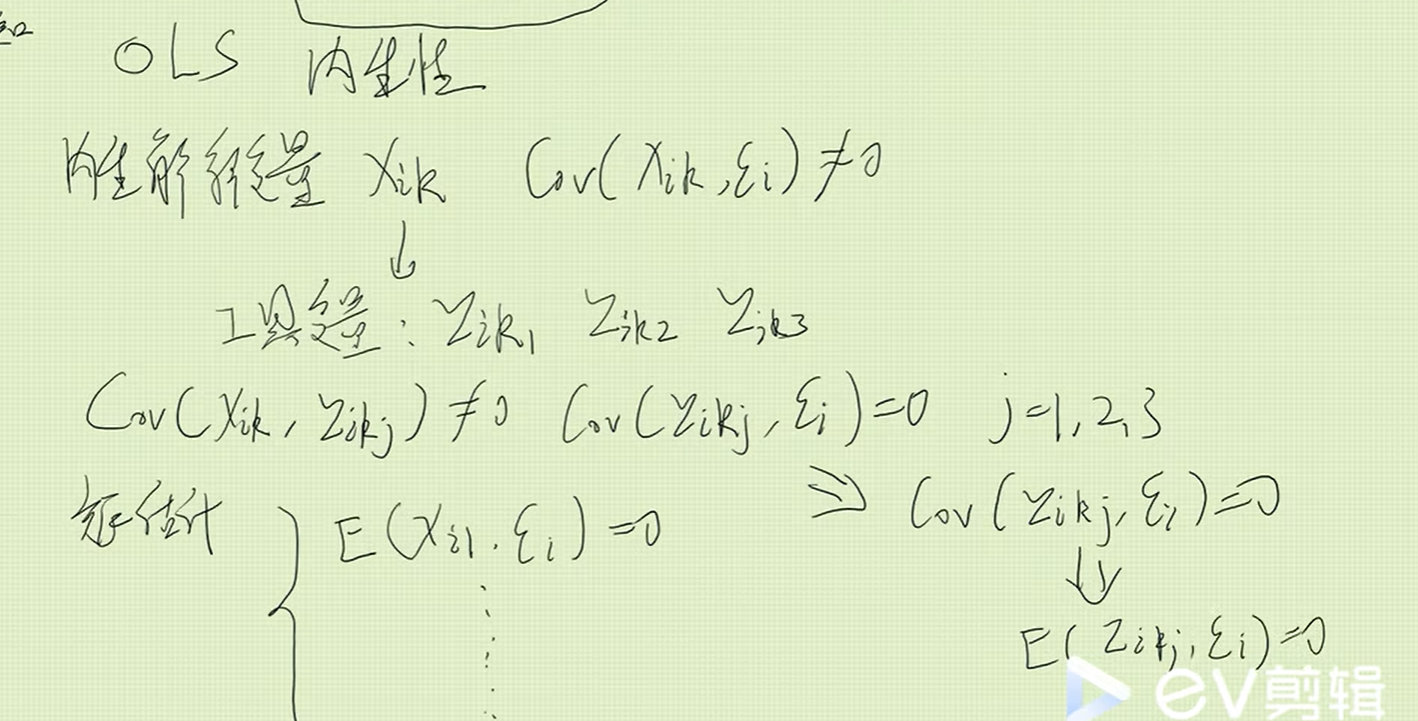 OLS 内生性
内生解释变量 Xik Cov(Xik, εi)≠0
↓
工具变量: Zik1 Zik2 Zik3
Cov(Xik, Zikj)≠0 Cov(Zikj, εi)=0 j=1,2,3
矩估计 { E(Xi1·εi)=0
⇒ Cov(Zikj, εi)=0
⇓
E(Zikj, εi)=0
ev剪辑